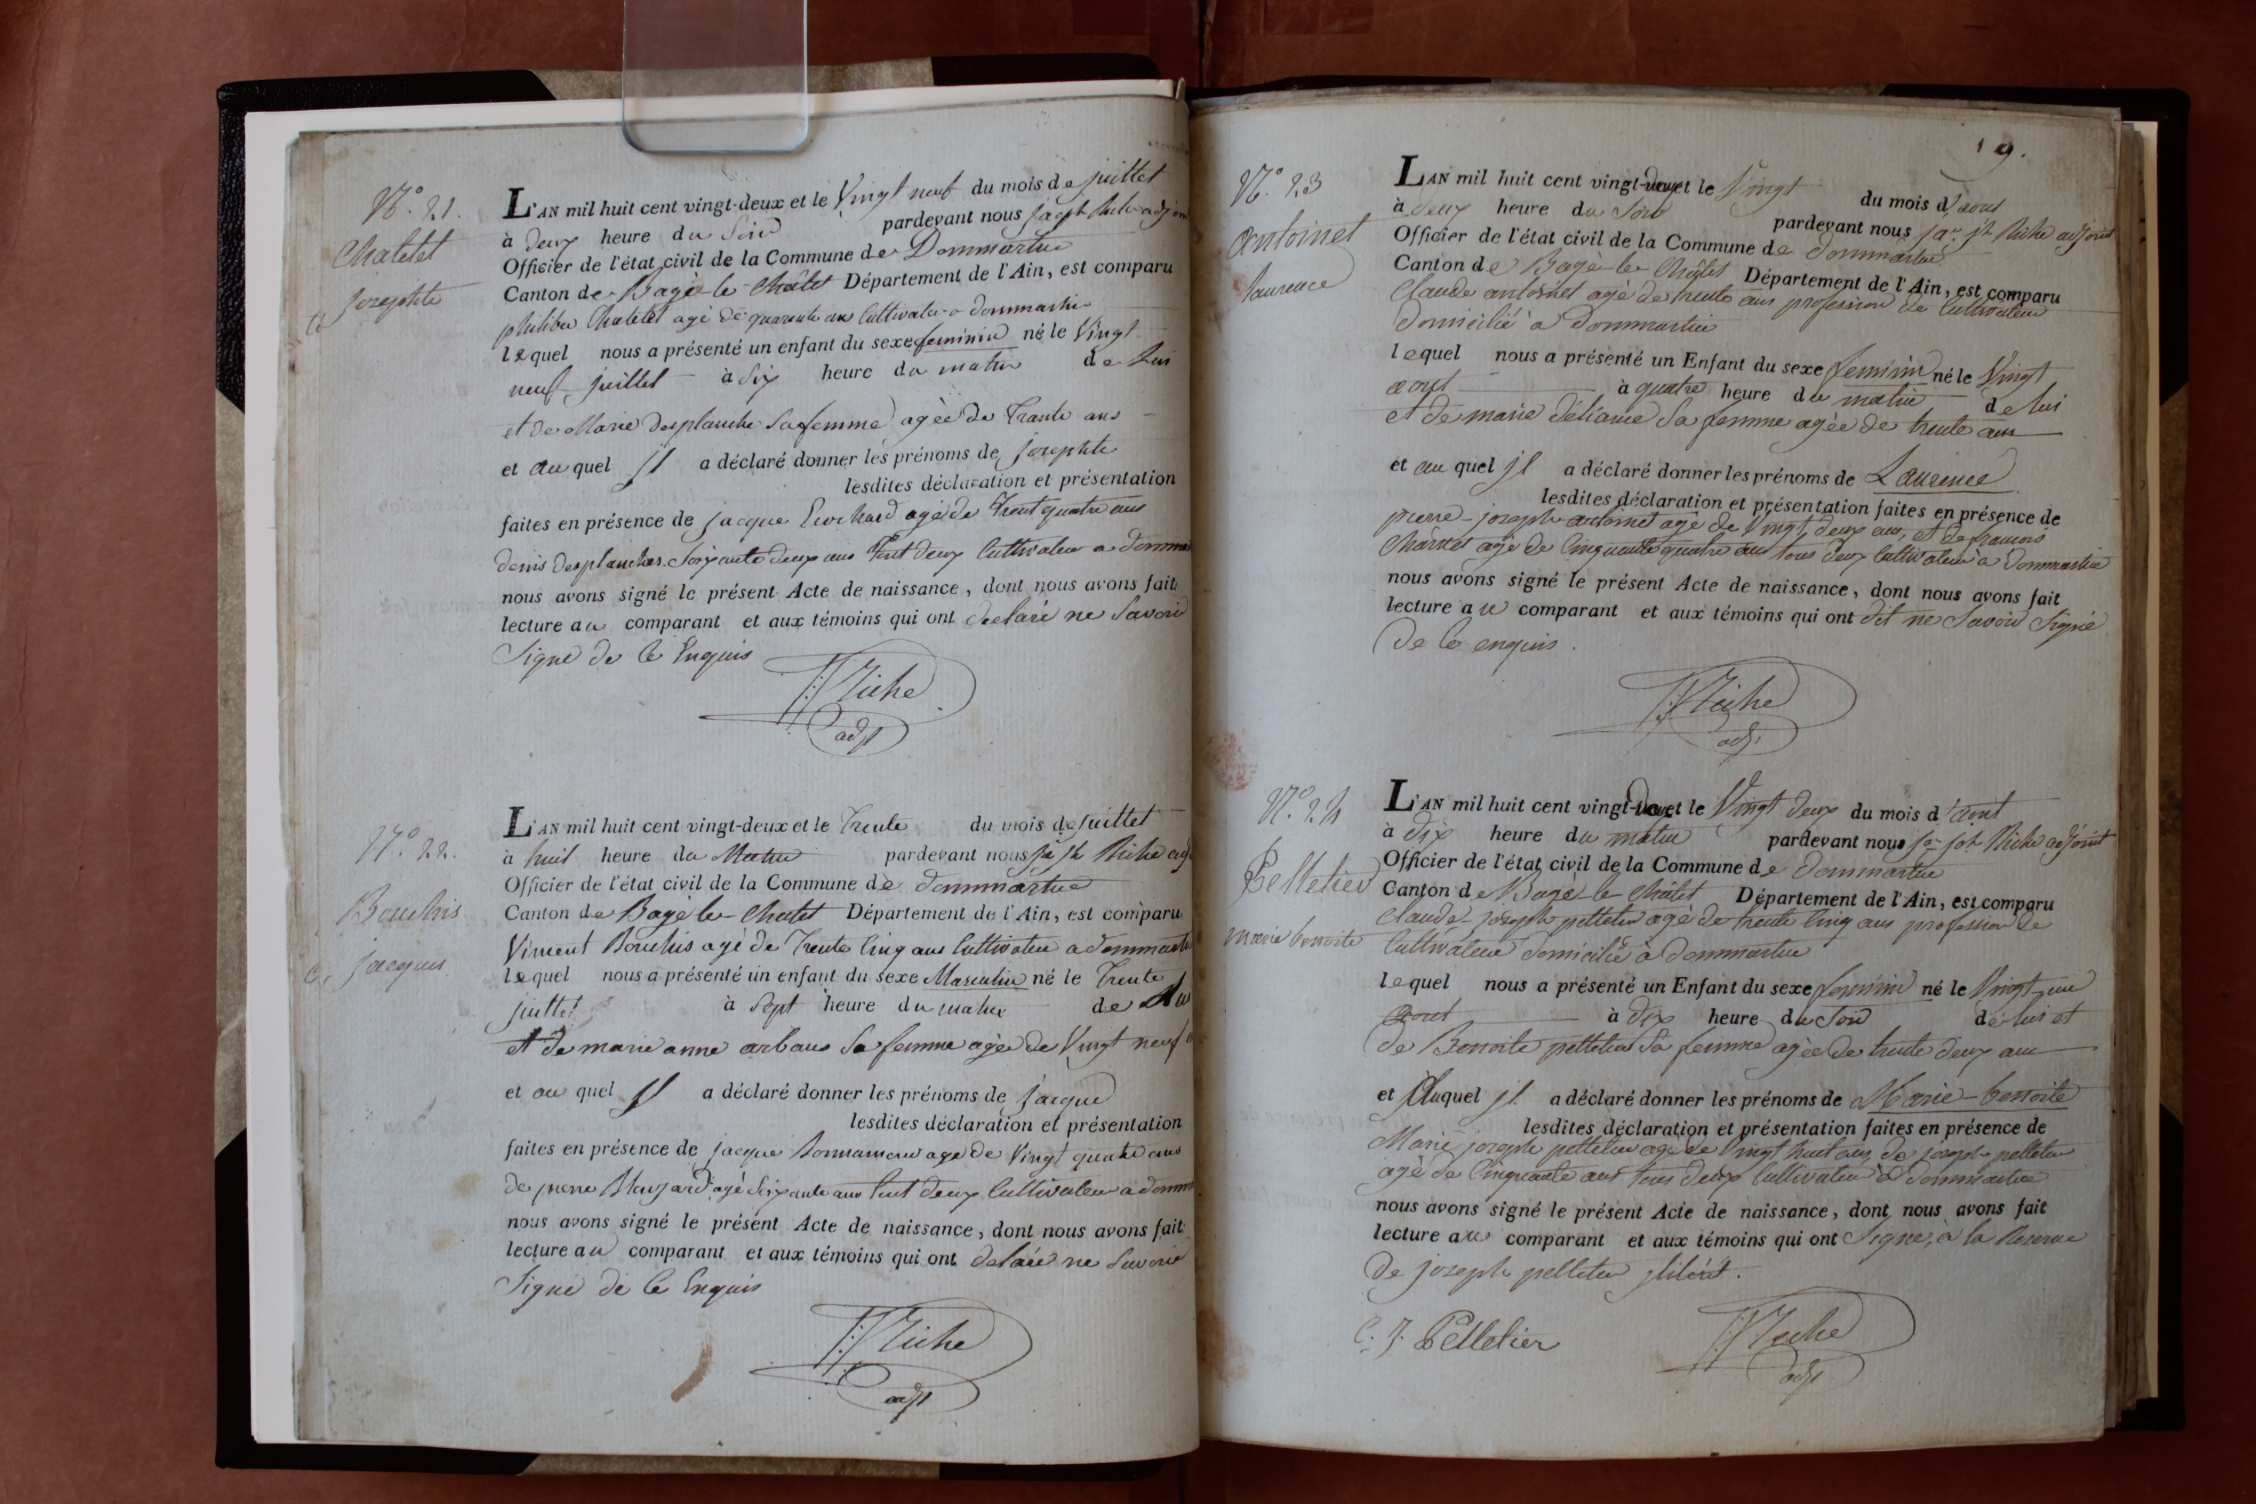 N.° 21.
Chatelet
Josephte
L'AN mil huit cent vingt-deux et le Vingt neuf du mois de juillet
à deux heure du Soir pardevant nous jaq jh Riche adjoin
Officier de l'état civil de la Commune de Dommartin
Canton de Bagé-le-Châtel Département de l'Ain, est comparu
philiber Chatelet agé de quarante ans Cultivateur a dommartin
lequel nous a présenté un enfant du sexe feminin né le Vingt
neuf juillet à Six heure du matin de lui
et de Marie desplanche Sa femme agée de Trante ans
et au quel jl a déclaré donner les prénoms de josephte
lesdites déclaration et présentation
faites en présence de jacque agé de Trent quatre ans
denis desplanches Soixante deux ans Tout deux Cultivateur a domm
nous avons signé le présent Acte de naissance, dont nous avons fait
lecture au comparant et aux témoins qui ont declaré ne Savoir
Signé de Ce Enquis
Riche
adjt
N.° 22.
Bouchis
jacques
L'AN mil huit cent vingt-deux et le Trente du mois de juillet
à huit heure du Matin pardevant nous ja jh Riche adj
Officier de l'état civil de la Commune de dommartin
Canton de Bagé le Chatel Département de l'Ain, est comparu
Vincent Bouchis agé de Trente Cinq ans Cultivateur a dommartin
lequel nous a présenté un enfant du sexe Masculin né le Trente
juillet à Sept heure du matin de lui
et de marie anne arbans Sa femme agée de Vingt neuf
et au quel jl a déclaré donner les prénoms de jacque
lesdites déclaration et présentation
faites en présence de jacque Bonnamour agé de Vingt quatre ans
de pierre agé Soixante ans Tout deux Cultivateur a domm
nous avons signé le présent Acte de naissance, dont nous avons fait
lecture au comparant et aux témoins qui ont delaré ne Savoir
Signé de Ce Enquis
Riche
adjt
19.
N.° 23
antoinet
laurence
L'AN mil huit cent vingt-deux et le Vingt du mois d'aout
à deux heure du Soir pardevant nous jaq jh Riche adjoint
Officier de l'état civil de la Commune de dommartin
Canton de Bagé-le-Châtel Département de l'Ain, est comparu
Claude antoinet agé de trente ans profession de Cultivateur
domicilié a dommartin
lequel nous a présenté un Enfant du sexe feminin né le Vingt
aout à quatre heure du matin de lui
et de marie deliance Sa femme agée de trente ans
et au quel jl a déclaré donner les prénoms de Laurence
lesdites déclaration et présentation faites en présence de
pierre-joseph antoinet agé de Vingt deux ans, et de francois
Charnet agé de Cinquante quatre ans tous deux Cultivateur a dommartin
nous avons signé le présent Acte de naissance, dont nous avons fait
lecture au comparant et aux témoins qui ont dit ne Savoir Signé
de Ce enquis.
Riche
adj.
N.° 24
Pelletier
marie benoite
L'AN mil huit cent vingt-deux et le Vingt deux du mois d'aout
à dix heure du matin pardevant nous ja- jph Riche adjoint
Officier de l'état civil de la Commune de dommartin
Canton de Bagé le Châtel Département de l'Ain, est comparu
Claude joseph pelletier agé de trente Cinq ans profession de
Cultivateur domicilié à dommartin
lequel nous a présenté un Enfant du sexe feminin né le Vingt-un
aout à dix heure du Soir de lui et
de Benoite pelletier Sa femme agée de trente deux ans
et Auquel jl a déclaré donner les prénoms de Marie-benoite
lesdites déclaration et présentation faites en présence de
Marie joseph pelletier agé de Vingt huit ans, de joseph pelletier
agé de Cinquante ans tous deux Cultivateur à dommartin
nous avons signé le présent Acte de naissance, dont nous avons fait
lecture au comparant et aux témoins qui ont Signé, à la Reserve
de joseph pelletier jlliterét.
C. J. Pelletier
Riche
adjt